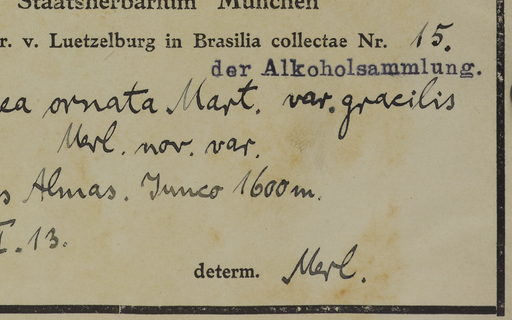 Staatsherbarium München
r. v. Luetzelburg in Brasilia collectae Nr. 15.
der Alkoholsammlung.
ea ornata Mart. var. gracilis
Merl. nov. var.
s Almas. Junco 1600 m.
I. 13.
determ. Merl.